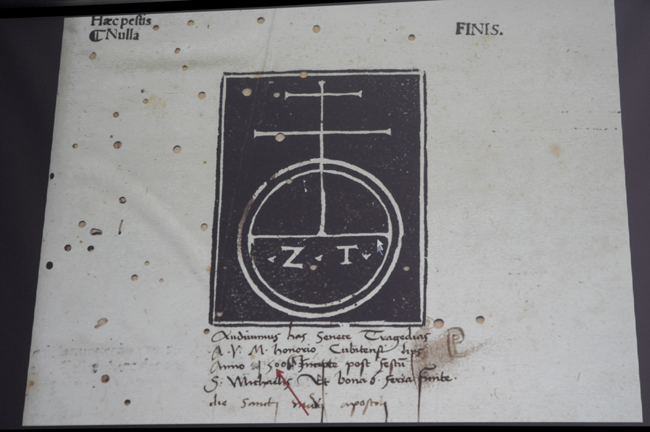 Hæc pestis
¶ Nulla
FINIS.
Z T
Audiuimus has Senece Tragedias
A. V. M. honorio Cubitensi
Anno post festū
S. Michaelis Et feria
die Sancti apostoli